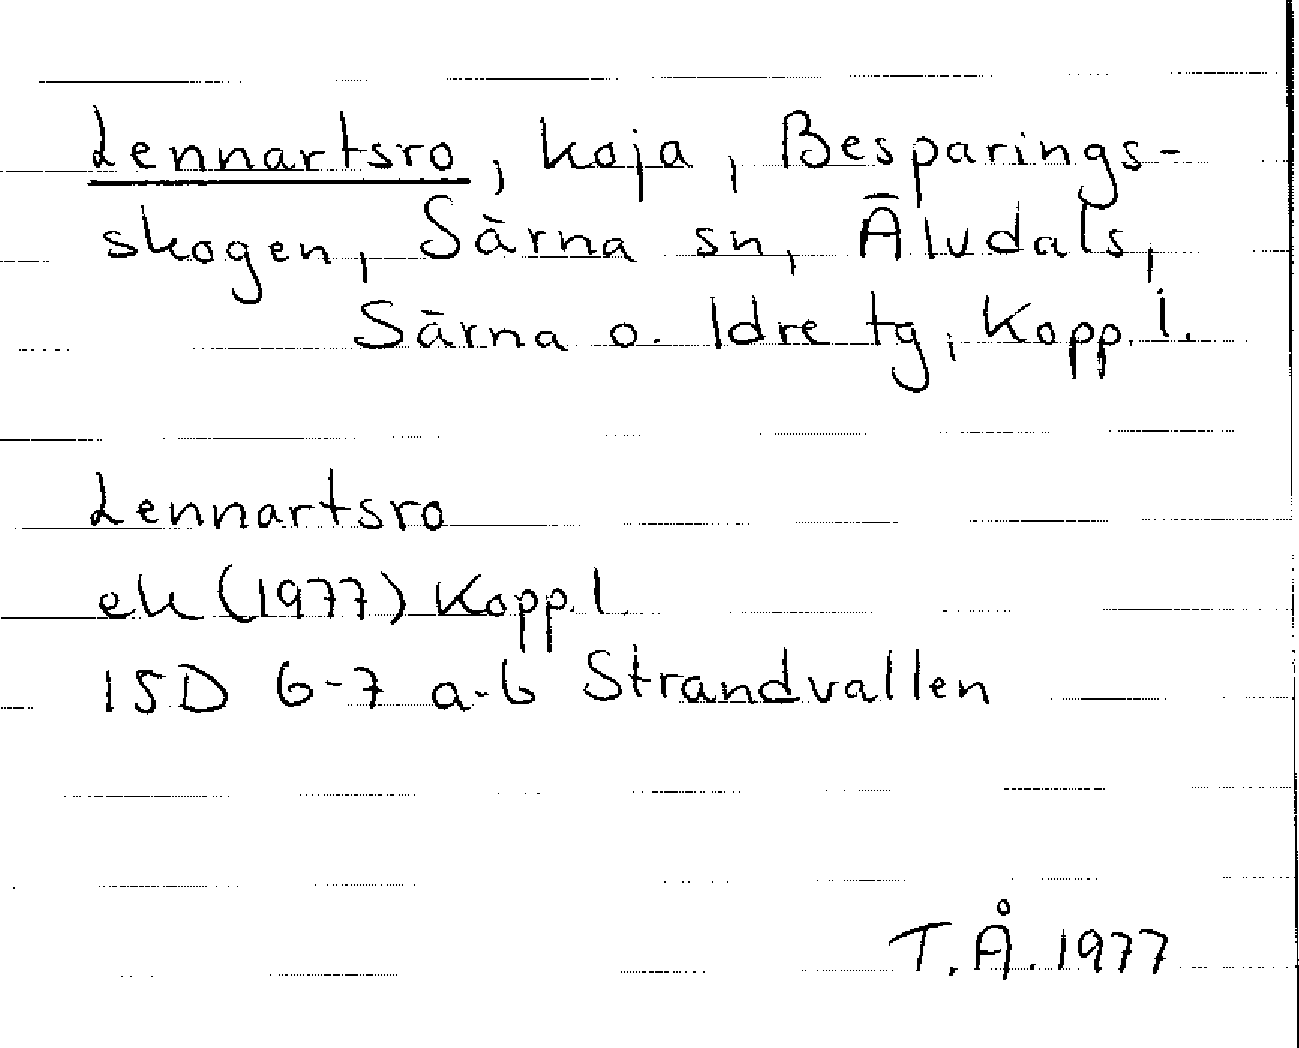 Lennartsro, koja, Besparings-
skogen, Särna sn, Älvdals,
Särna o. Idre tg, Kopp. l.
Lennartsro
ek (1977) Kopp. l.
15D 6-7 a-b Strandvallen
T.Å. 1977